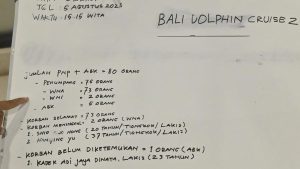 TGL : 5 AGUSTUS 2025
WAKTU : 15.15 WITA
BALI DOLPHIN CRUISE 2
JUMLAH PNP + ABK = 80 ORANG
- PENUMPANG = 75 ORANG
- WNA = 73 ORANG
- WNI = 2 ORANG
- ABK = 5 ORANG
- KORBAN SELAMAT = 77 ORANG
- KORBAN MENINGGAL = 2 ORANG (WNA)
1. (20 TAHUN/TIONGKOK/LAKI2)
2. YU (37 TAHUN/TIONGKOK/LAKI2)
- KORBAN BELUM DIKETEMUKAN = 1 ORANG (ABK)
1. KADEK ADI JAYA DINATA, LAKI2 (23 TAHUN)